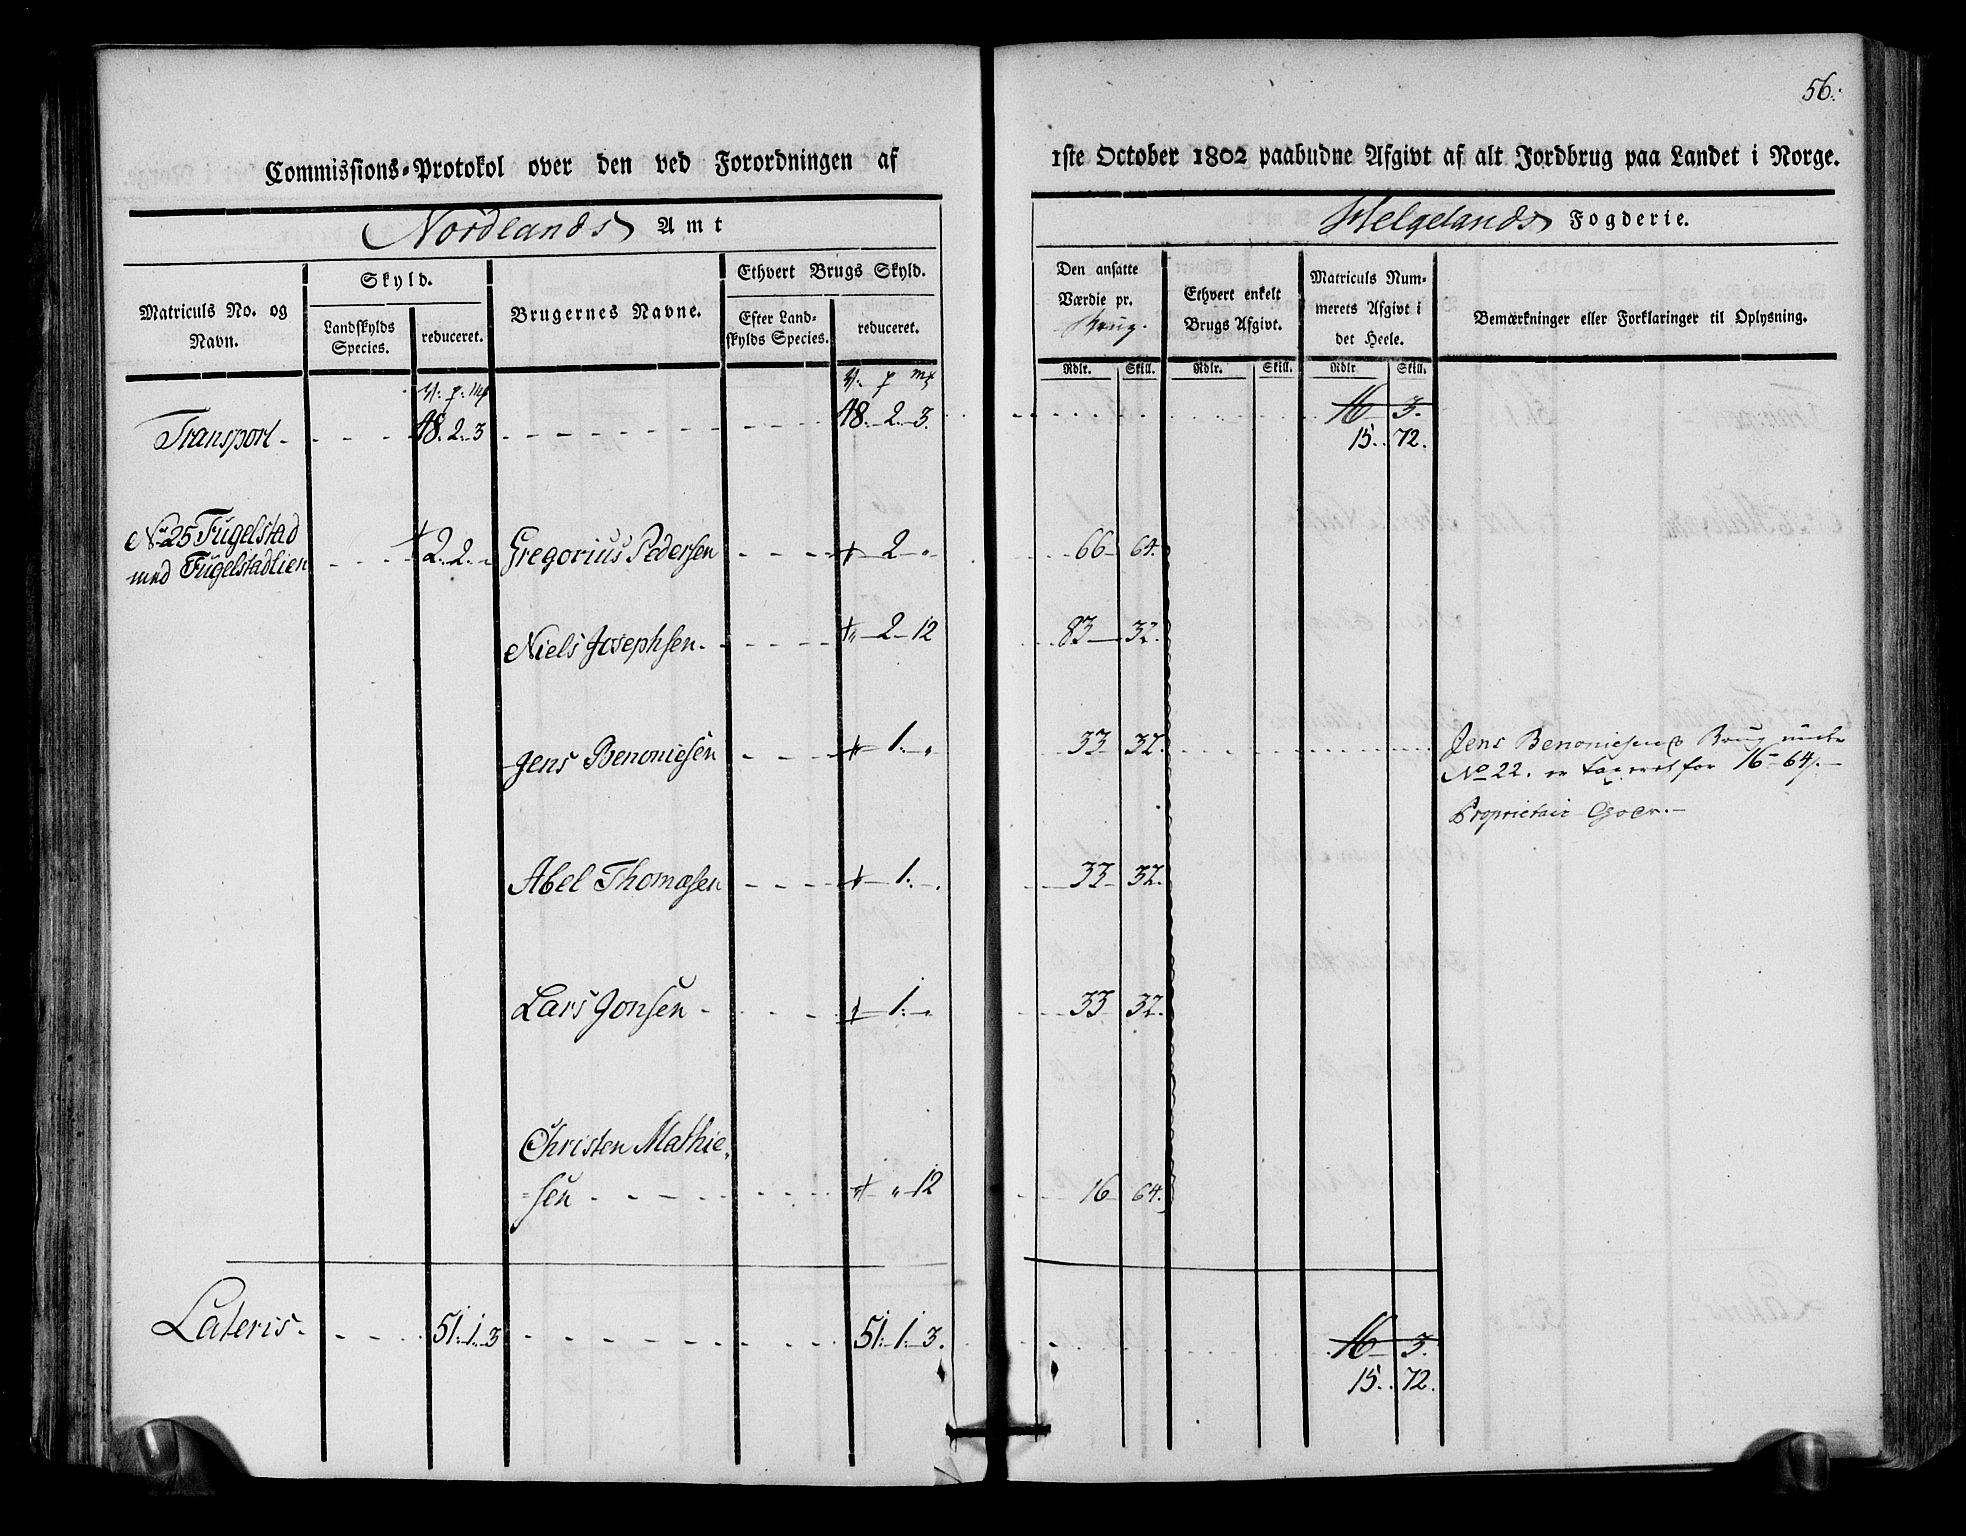 56.
Commissions-Protokol over den ved Forordningen af 1ste October 1802 paabudne Afgivt af alt Jordbrug paa Landet i Norge.
Nordlands Amt
Helgelands Fogderie.
Matriculs No. og Navn.
Skyld.
Landskylds Species.
reduceret.
Brugernes Navne.
Ethvert Brugs Skyld.
Efter Landskylds Species.
reduceret.
Den ansatte Værdie pr. Brug.
Ethvert enkelt Brugs Afgivt.
Matriculs Nummerets Afgivt i det Heele.
Bemærkninger eller Forklaringer til Oplysning.
Rdlr. Skill. Rdlr. Skill. Rdlr Skill.
Transport - 48. 2. 3 48. 2. 3. 16 3.
15. 72.
No 25 Fugelstad
med Fugelstadlien 2. 2. Gregorius Pedersen 2 " 66 64.
Niels Josephsen 2 12 83 32.
Jens Benoniesen 1. " 33 32. Jens Benoniesens Brug under
No 22. er taxeret for 16 - 64 s.
Proprietair Gods.
Abel Thomæsen 1. 33 32.
Lars Jonsen 1. " 33 32.
Christen Mathie-
sen " 12 16 64.
Lateris 51. 1. 3 51. 1. 3. 16 3.
15. 72.